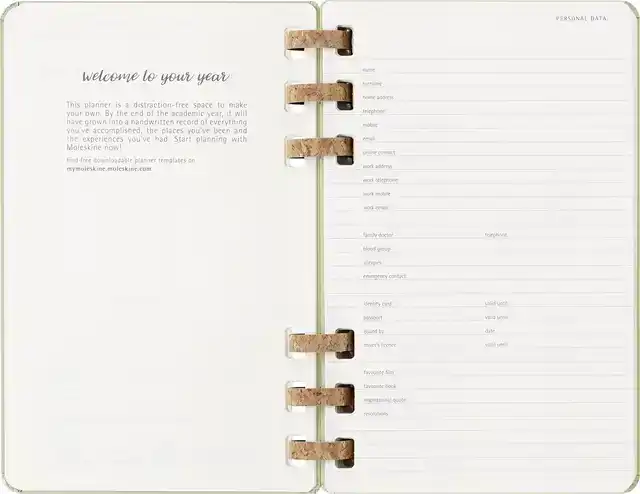 welcome to your year
This planner is a distraction-free space to make
your own. By the end of the academic year, it will
have grown into a handwritten record of everything
you've accomplished, the places you've been and
the experiences you've had. Start planning with
Moleskine now!
find free downloadable planner templates on
mymoleskine.moleskine.com
PERSONAL DATA
name
surname
home address
telephone
mobile
email
online contact
work address
work telephone
work mobile
work email
family doctor telephone
blood group
allergies
emergency contact
identity card valid until
passport valid until
issued by date
driver's licence valid until
favourite film
favourite book
inspirational quote
resolutions